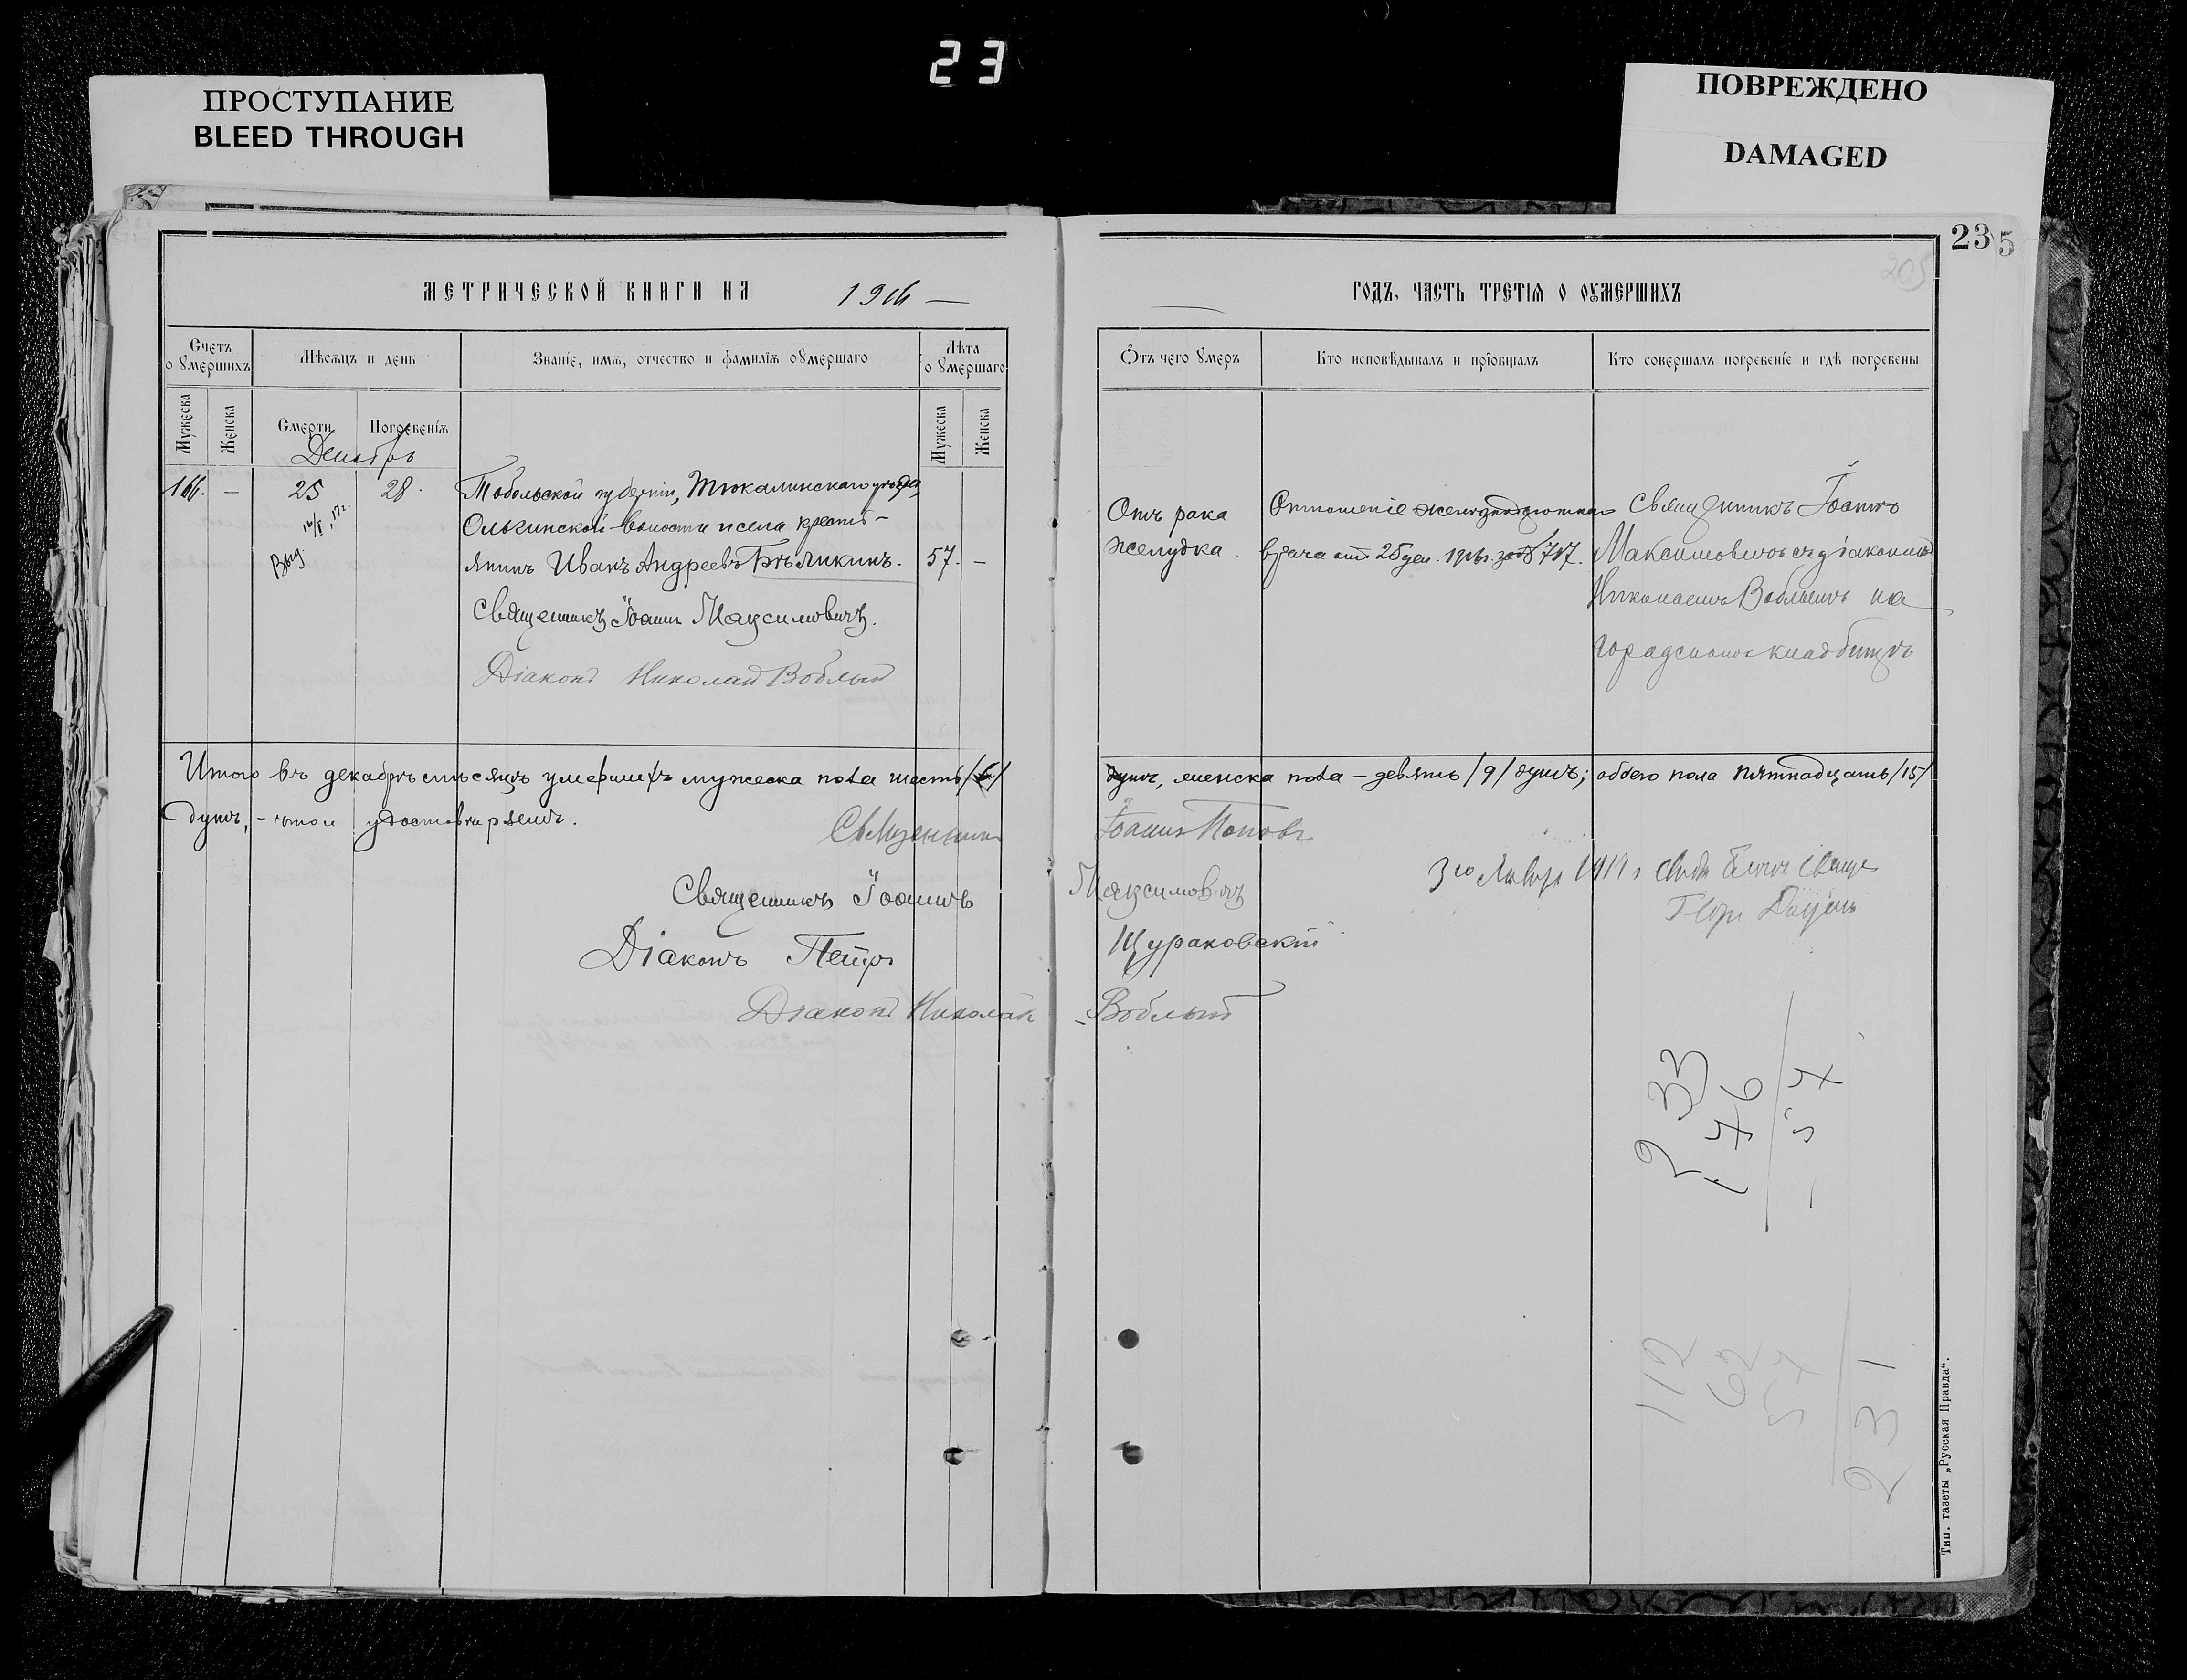 23
ПРОСТУПАНИЕ
BLEED THROUGH
ПОВРЕЖДЕНО
DAMAGED
235
205
МЕТРИЧЕСКОЙ КНИГИ НА 1916
ГОДЪ, ЧАСТЬ ТРЕТІЯ О ОУМЕРШИХЪ
Счетъ оумершихъ
Мѣсяцъ и день
Званіе, имя, отчество и фамилія оумершаго
Лѣта оумершаго
Отъ чего умеръ
Кто исповѣдывалъ и пріобщалъ
Кто совершалъ погребеніе и гдѣ погребены
Мужеска
Женска
Смерти
Погребенія
Мужеска
Женска
Декабрь
166. — 25. 28. Тобольской губерніи, Тюкалинскаго уѣзда,
волости и села кресть-
янинъ Иванъ Андреевъ Бѣлякинъ. 57. —
Выд. 16/I 17 г.
Священникъ Іоаннъ Максимовичъ.
Діаконъ Николай Воблый
Отъ рака
желудка.
Отношеніе
врача отъ 25 дек. 1916 г. за № 717.
Священникъ Іоаннъ
Максимовичъ съ діакономъ
Николаемъ Воблымъ на
городскомъ кладбищѣ
Итого въ декабрѣ мѣсяцѣ умершихъ мужеска пола шесть /6/
душъ, женска пола – девять /9/ душъ; обоего пола пятнадцать /15/
душъ, – въ томъ удостовѣряемъ.
Священникъ Іоаннъ Поповъ
Священникъ Іоаннъ Максимовичъ
Діаконъ Петръ Щураковскій
Діаконъ Николай Воблый
3го Января 1917 г.
233
176
57
112
62
57
231
Тип. газеты „Русская Правда“.